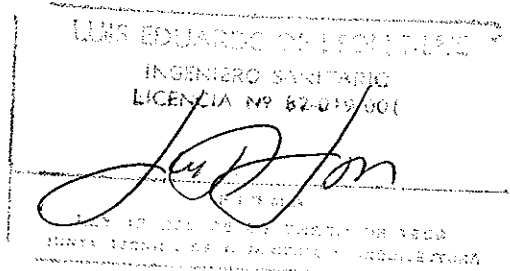 LUIS EDUARDO DE LEON
INGENIERO SANITARIO
LICENCIA Nº 82-019-001
FIRMA
LEY 15 DEL 26 DE ENERO DE 1959
JUNTA TECNICA DE INGENIERIA Y ARQUITECTURA